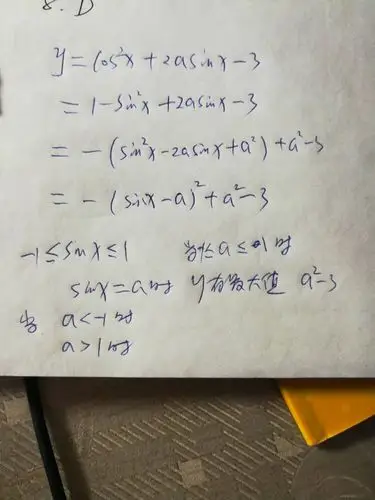 8. D
y = cos²x + 2asinx - 3
= 1 - sin²x + 2asinx - 3
= - (sin²x - 2asinx + a²) + a² - 3
= - (sinx - a)² + a² - 3
-1 ≤ sinx ≤ 1 当 -1 ≤ a ≤ 1 时
sinx = a 时 y有最大值 a² - 3
当 a < -1 时
a > 1 时